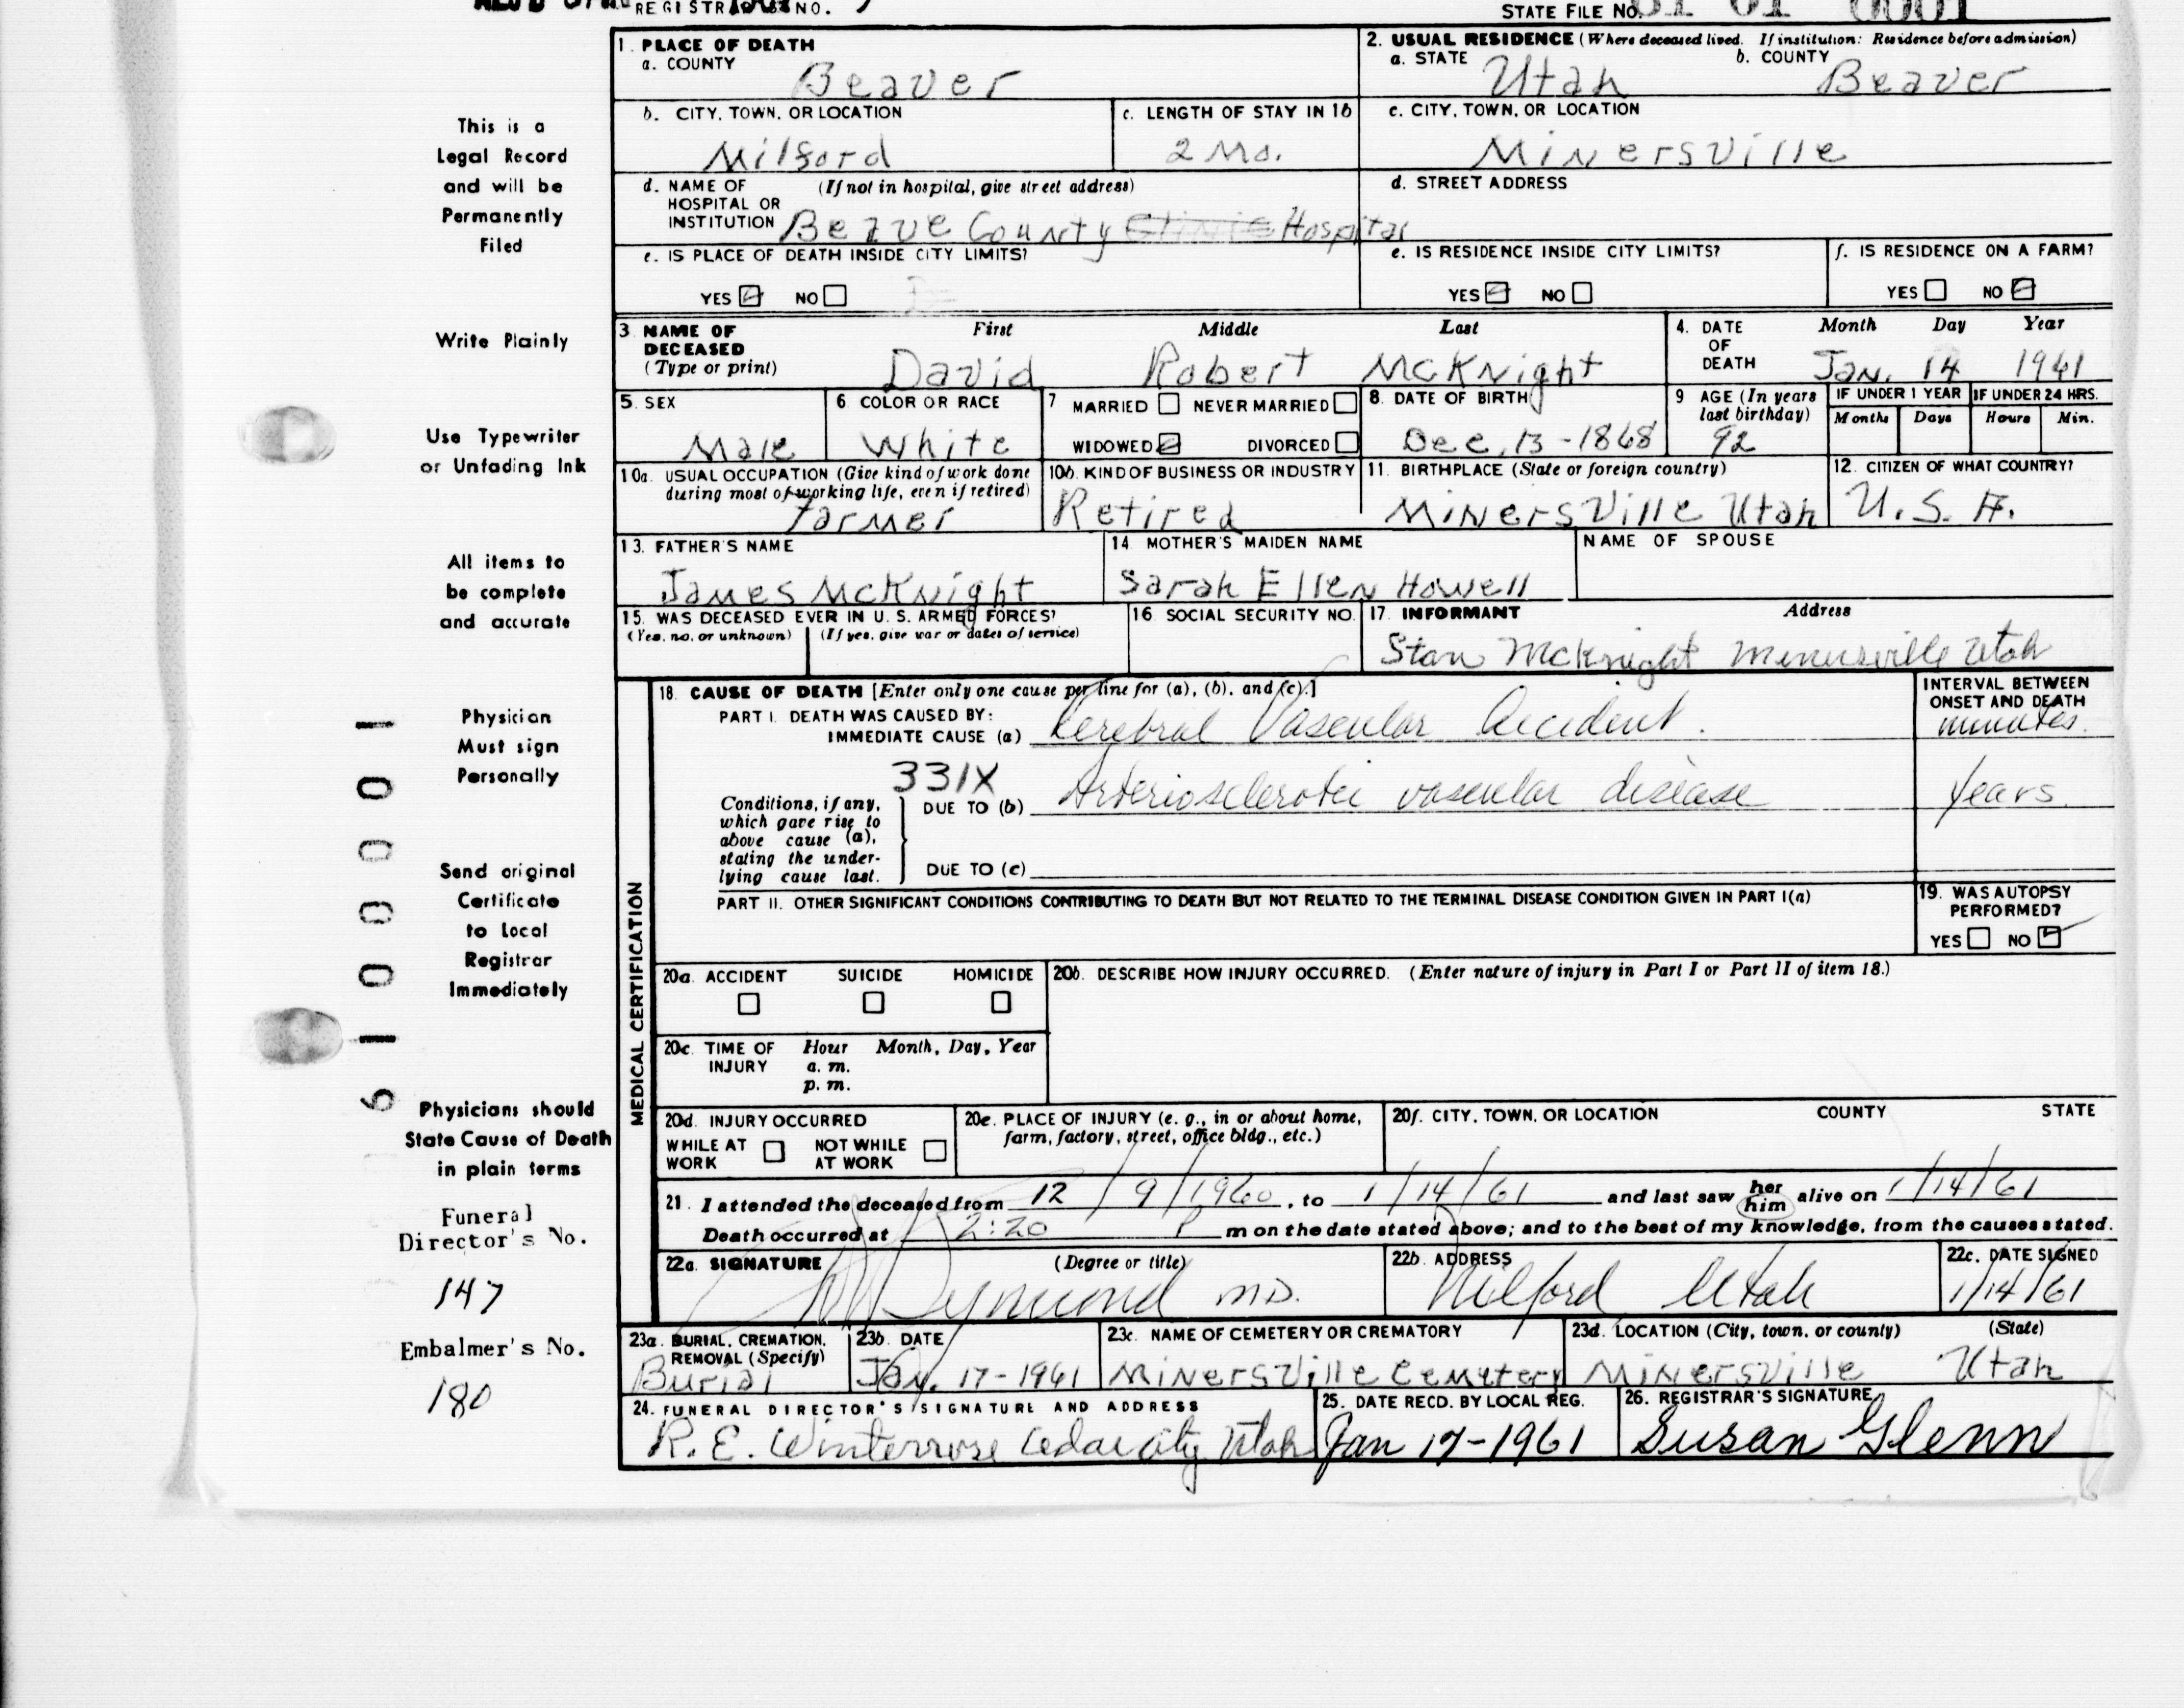 REGISTRAR'S NO.
STATE FILE NO. 61 01 0001
1. PLACE OF DEATH
a. COUNTY Beaver
2. USUAL RESIDENCE (Where deceased lived. If institution: Residence before admission)
a. STATE Utah b. COUNTY Beaver
b. CITY, TOWN, OR LOCATION Milford
c. LENGTH OF STAY IN 1b 2 Mo.
c. CITY, TOWN, OR LOCATION Minersville
d. NAME OF HOSPITAL OR INSTITUTION (If not in hospital, give street address)
Beave County Clinic Hospital
d. STREET ADDRESS
e. IS PLACE OF DEATH INSIDE CITY LIMITS?
YES NO
e. IS RESIDENCE INSIDE CITY LIMITS?
YES NO
f. IS RESIDENCE ON A FARM?
YES NO
3. NAME OF DECEASED (Type or print)
First Middle Last
David Robert McKnight
4. DATE OF DEATH
Month Day Year
Jan. 14 1961
5. SEX Male
6. COLOR OR RACE White
7. MARRIED NEVER MARRIED
WIDOWED DIVORCED
8. DATE OF BIRTH Dec, 13 - 1868
9. AGE (In years last birthday) 92
IF UNDER 1 YEAR Months Days
IF UNDER 24 HRS. Hours Min.
10a. USUAL OCCUPATION (Give kind of work done during most of working life, even if retired)
Farmer
10b. KIND OF BUSINESS OR INDUSTRY
Retired
11. BIRTHPLACE (State or foreign country)
Minersville Utah
12. CITIZEN OF WHAT COUNTRY?
U. S. A.
13. FATHER'S NAME
James McKnight
14. MOTHER'S MAIDEN NAME
Sarah Ellen Howell
NAME OF SPOUSE
15. WAS DECEASED EVER IN U. S. ARMED FORCES?
(Yes, no, or unknown) (If yes, give war or dates of service)
16. SOCIAL SECURITY NO.
17. INFORMANT Address
Stan McKnight Minersville Utah
MEDICAL CERTIFICATION
18. CAUSE OF DEATH [Enter only one cause per line for (a), (b), and (c).]
PART I. DEATH WAS CAUSED BY:
IMMEDIATE CAUSE (a) Cerebral Vascular Accident.
INTERVAL BETWEEN ONSET AND DEATH
minutes
331X
Conditions, if any, which gave rise to above cause (a), stating the underlying cause last.
DUE TO (b) Arteriosclerotic vascular disease
years
DUE TO (c)
PART II. OTHER SIGNIFICANT CONDITIONS CONTRIBUTING TO DEATH BUT NOT RELATED TO THE TERMINAL DISEASE CONDITION GIVEN IN PART I(a)
19. WAS AUTOPSY PERFORMED?
YES NO
20a. ACCIDENT SUICIDE HOMICIDE
20b. DESCRIBE HOW INJURY OCCURRED. (Enter nature of injury in Part I or Part II of item 18.)
20c. TIME OF INJURY Hour a. m. p. m. Month, Day, Year
20d. INJURY OCCURRED
WHILE AT WORK NOT WHILE AT WORK
20e. PLACE OF INJURY (e. g., in or about home, farm, factory, street, office bldg., etc.)
20f. CITY, TOWN, OR LOCATION COUNTY STATE
21. I attended the deceased from 12/9/1960, to 1/14/61 and last saw her him alive on 1/14/61
Death occurred at 2:20 P m on the date stated above; and to the best of my knowledge, from the causes stated.
22a. SIGNATURE (Degree or title)
Symond M.D.
22b. ADDRESS
Milford Utah
22c. DATE SIGNED
1/14/61
23a. BURIAL, CREMATION, REMOVAL (Specify)
Burial
23b. DATE
Jan. 17-1961
23c. NAME OF CEMETERY OR CREMATORY
Minersville Cemetery
23d. LOCATION (City, town, or county) (State)
Minersville Utah
24. FUNERAL DIRECTOR'S SIGNATURE AND ADDRESS
R. E. Winterrose Cedar City Utah
25. DATE RECD. BY LOCAL REG.
Jan 17-1961
26. REGISTRAR'S SIGNATURE
Susan Glenn
This is a
Legal Record
and will be
Permanently
Filed
Write Plainly
Use Typewriter
or Unfading Ink
All items to
be complete
and accurate
Physician
Must sign
Personally
Send original
Certificate
to Local
Registrar
Immediately
Physicians should
State Cause of Death
in plain terms
Funeral
Director's No.
147
Embalmer's No.
180
61 0 0 0 0 1